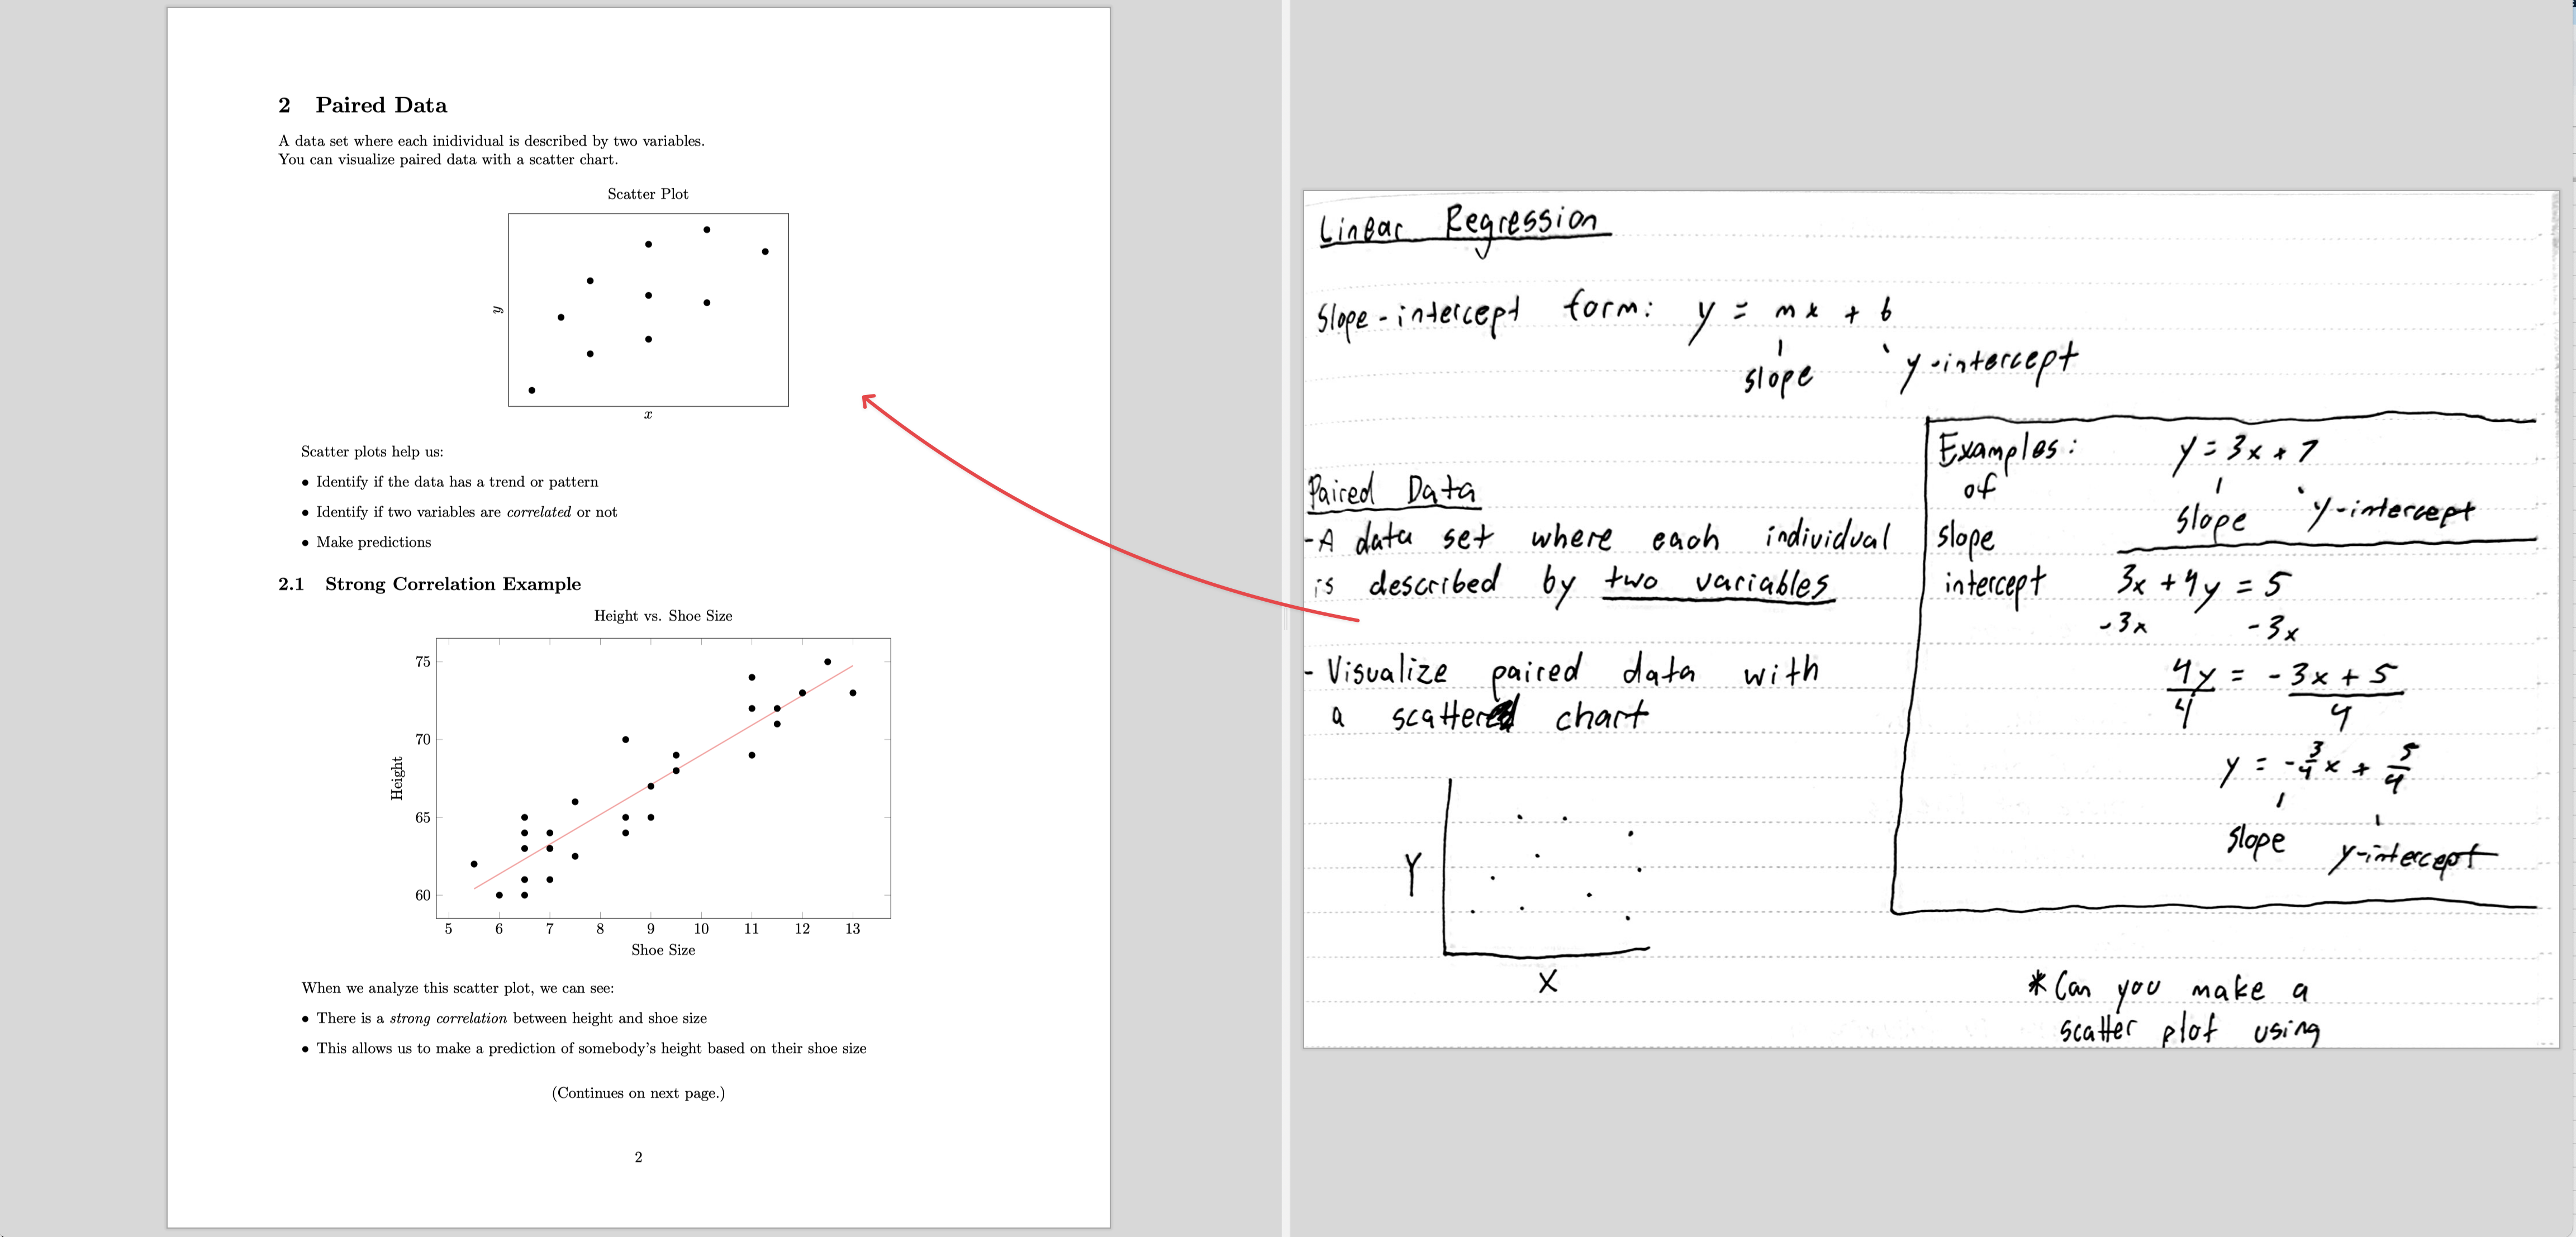 2 Paired Data
A data set where each inidividual is described by two variables.
You can visualize paired data with a scatter chart.
Scatter Plot
y
x
Scatter plots help us:
• Identify if the data has a trend or pattern
• Identify if two variables are correlated or not
• Make predictions
2.1 Strong Correlation Example
Height vs. Shoe Size
75
70
65
60
Height
5 6 7 8 9 10 11 12 13
Shoe Size
When we analyze this scatter plot, we can see:
• There is a strong correlation between height and shoe size
• This allows us to make a prediction of somebody's height based on their shoe size
(Continues on next page.)
2
Linear Regression
Slope-intercept form: y = mx + b
slope y-intercept
Paired Data
-A data set where each individual
is described by two variables
- Visualize paired data with
a scatter chart
Y
X
Examples:
of
slope
intercept
y = 3x + 7
slope y-intercept
3x + 4y = 5
-3x -3x
4y = -3x + 5
4 4
y = -3/4 x + 5/4
slope y-intercept
* Can you make a
scatter plot using